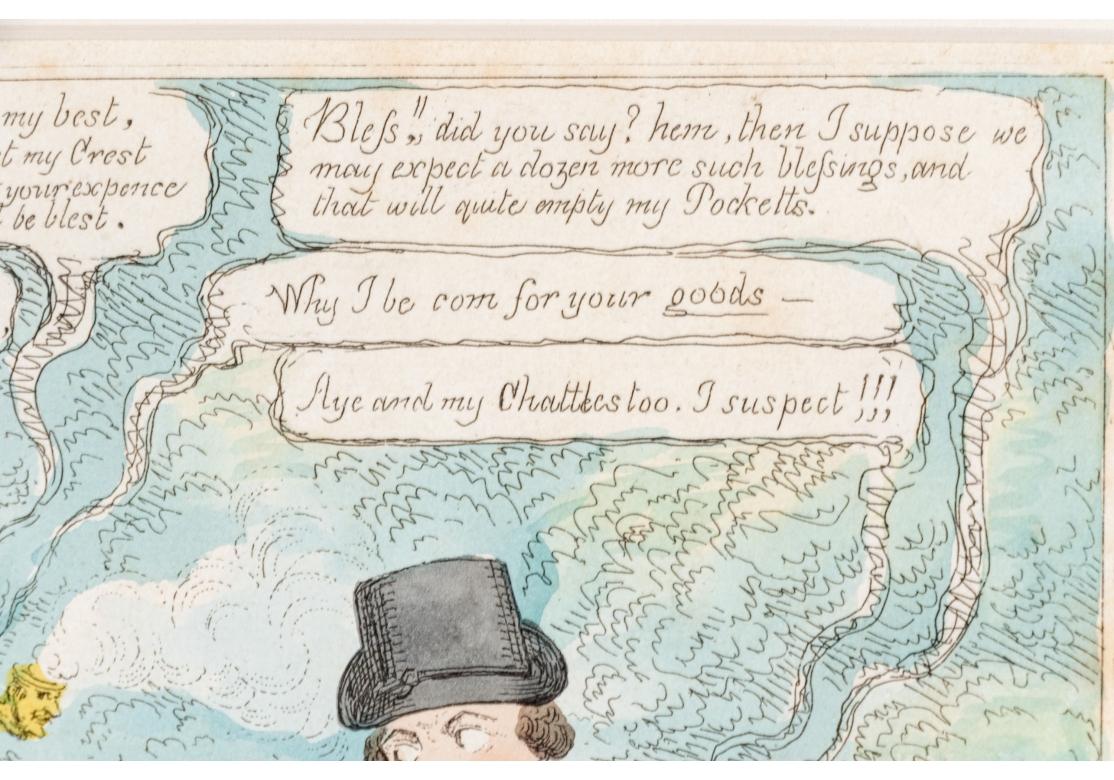 my best,
my Crest
your expence
be blest.
Bleſs",, did you say? hem, then I suppose we
may expect a dozen more such bleſsings, and
that will quite empty my Pocketts.
Why I be com for your goods —
Aye and my Chattles too. I suspect !!!